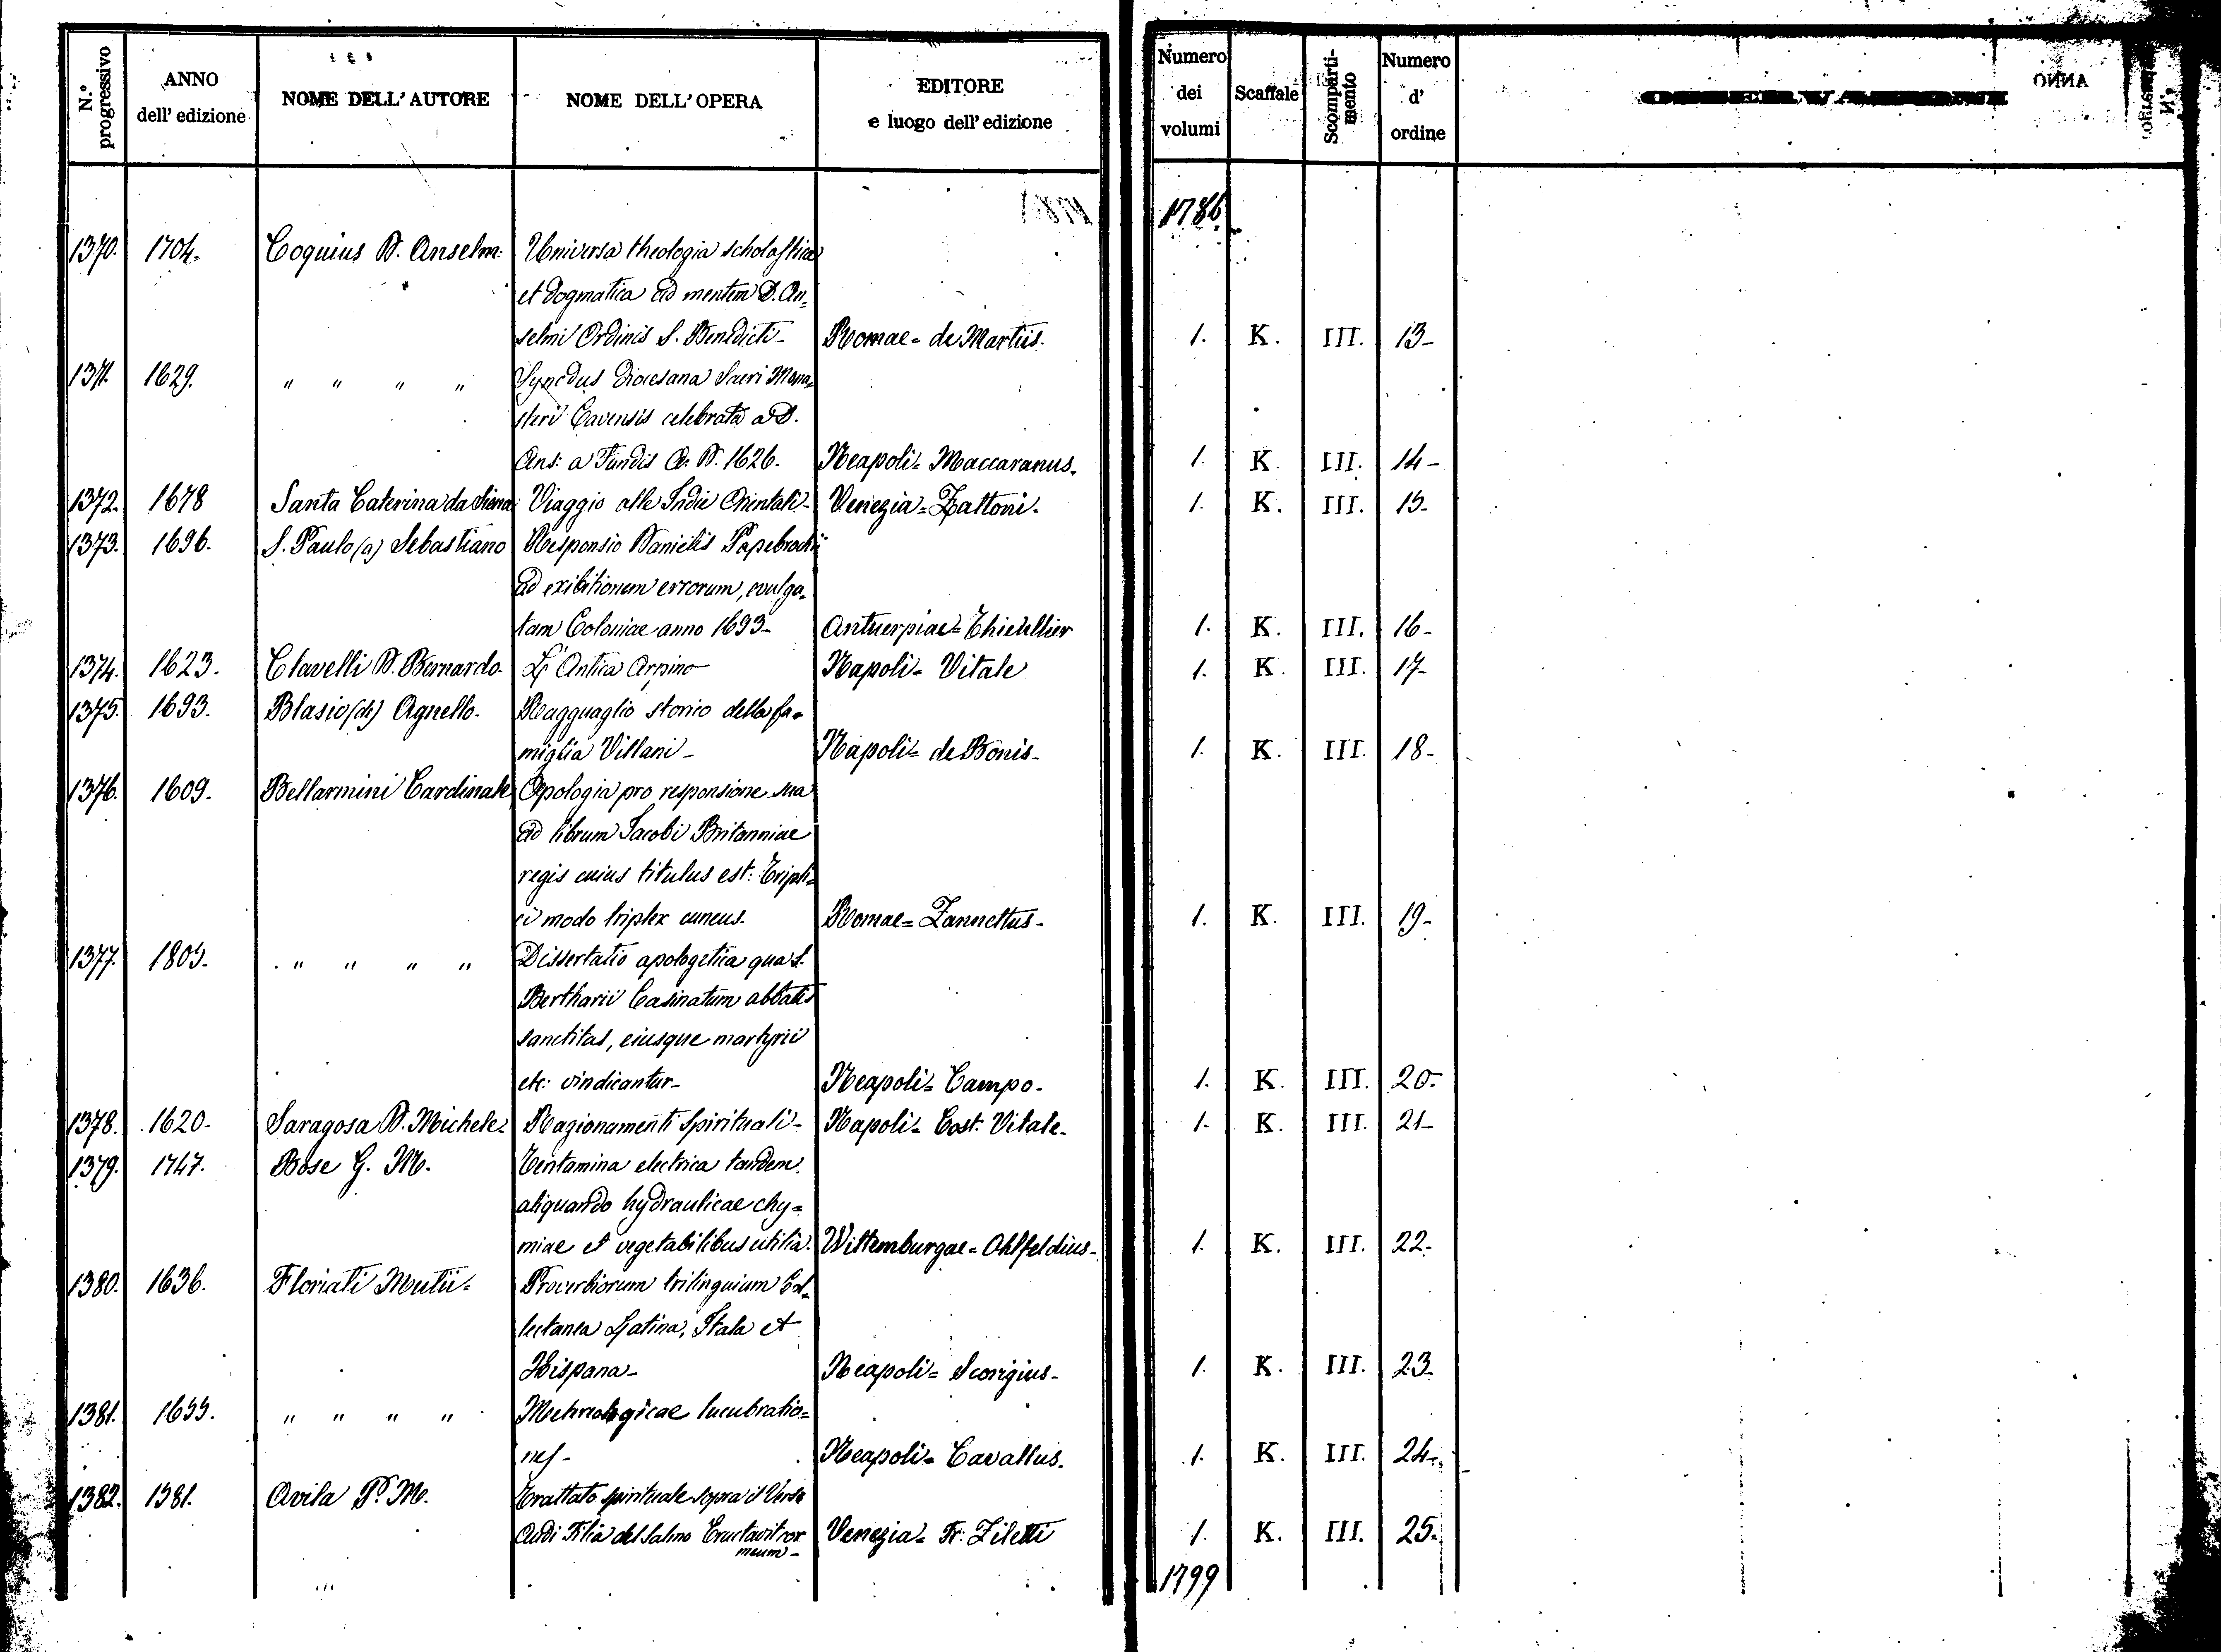 N.° progressivo | ANNO dell' edizione | NOME DELL' AUTORE | NOME DELL' OPERA | EDITORE e luogo dell' edizione | Numero dei volumi | Scaffale | Scomparti-mento | Numero d' ordine | OSSERVAZIONI
1786.
1370. 1704. Coquius D. Anselm: Universa theologia scholastica
et dogmatica ad mentem D. An=
selmi Ordinis S. Benedicti- Romae= de Martiis. 1. K. III. 13-
1371. 1629. " " " " Synodus Diocesana Sacri Mona=
steri Cavensis celebrata a D.
Ans: a Fundis A. D. 1626. Neapoli= Maccaranus. 1. K. III. 14-
1372. 1678 Santa Caterina da Siena Viaggio alle Indie Orientali- Venezia= Zattoni. 1. K. III. 15-
1373. 1696. S. Paulo (a) Sebastiano Responsio Danielis Papebrochii
ad exibitionem errorum, evulga=
tam Coloniae anno 1693- Antuerpiae= Thieullier 1. K. III. 16-
1374. 1623. Clavelli D. Bernardo. L'Antica Arpino Napoli= Vitale 1. K. III. 17-
1375. 1693. Blasio (de) Agnello. Ragguaglio storico della fa=
miglia Villani- Napoli= de Bonis. 1. K. III. 18-
1376. 1609. Bellarmini Cardinale Apologia pro responsione sua
ad librum Jacobi Britanniae
regis cuius titulus est: Tripli=
ci modo triplex cuneus. Romae= Zannettus- 1. K. III. 19-
1377. 1805. " " " " Dissertatio apologetica qua S.
Bertharii Casinatum abbatis
sanctitas, eiusque martyrii
etc: vindicantur- Neapoli= Campo. 1. K. III. 20-
1378. 1620- Saragosa D. Michele- Ragionamenti Spirituali- Napoli= Cost. Vitale. 1- K. III. 21-
1379. 1747. Bose G. M. Tentamina electrica tandem
aliquando hydraulicae chy=
miae et vegetabilibus utilia. Wittemburgae= Ohlfeldius- 1. K. III. 22-
1380. 1636. Floriati Mutii= Proverbiorum trilinguium Col=
lectanea Latina, Itala et
Hispana- Neapoli= Scorigius- 1. K. III. 23-
1381. 1655. " " " " lucubratio=
nes- Neapoli= Cavallus. 1. K. III. 24-
1382. 1581. Avila P. M. Trattato spirituale sopra il Verso
Audi Filia del Salmo Eructavit cor Venezia= Fr: Ziletti 1. K. III. 25-
meum-
1799